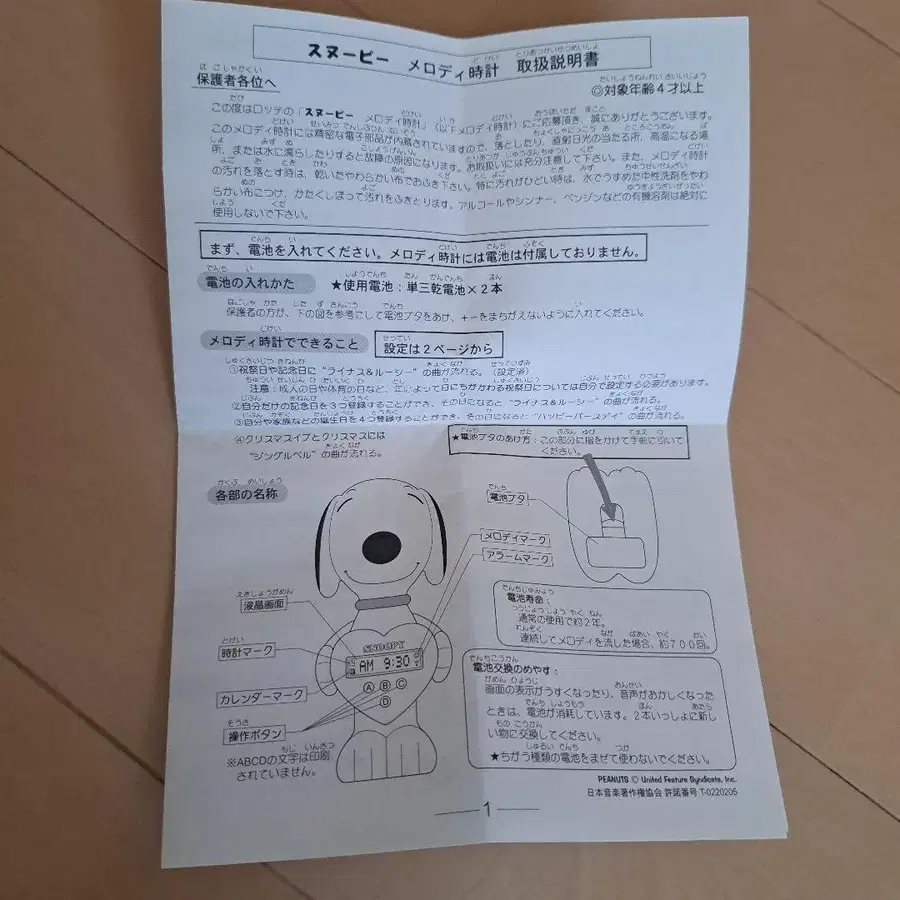 スヌーピー メロディ時計 取扱説明書
保護者各位へ
◎対象年齢4才以上
この度はロッテの「スヌーピー メロディ時計」(以下メロディ時計)にご応募頂き、誠にありがとうございます。
このメロディ時計には精密な電子部品が内蔵されていますので、落としたり、直射日光の当たる所、高温になる場
所、または水に濡らしたりすると故障の原因になります。お取扱いには充分注意して下さい。また、メロディ時計
の汚れを落とす時は、乾いたやわらかい布でおふき下さい。特に汚れがひどい時は、水でうすめた中性洗剤をやわ
らかい布につけ、かたくしぼって汚れをふきとります。アルコールやシンナー、ベンジンなどの有機溶剤は絶対に
使用しないで下さい。
まず、電池を入れてください。メロディ時計には電池は付属しておりません。
電池の入れかた ★使用電池:単三乾電池×2本
保護者の方が、下の図を参考にして電池ブタをあけ、+-をまちがえないように入れてください。
メロディ時計でできること 設定は2ページから
①祝祭日や記念日に“ライナス&ルーシー”の曲が流れる。(設定済)
注意:成人の日や体育の日など、年によって日にちがかわる祝祭日については自分で設定する必要があります。
②自分だけの記念日を3つ登録することができ、その日になると“ライナス&ルーシー”の曲が流れる。
③自分や家族などの誕生日を4つ登録することができ、その日になると“ハッピーバースデイ”の曲が流れる。
④クリスマスイブとクリスマスには
“ジングルベル”の曲が流れる。
★電池ブタのあけ方:この部分に指をかけて手前に引いて
ください。
各部の名称
電池ブタ
メロディマーク
アラームマーク
液晶画面
時計マーク
カレンダーマーク
操作ボタン
※ABCDの文字は印刷
されていません。
SNOOPY
AM 9:30
A B C
D
電池寿命:
通常の使用で約2年。
連続してメロディを流した場合、約700回。
電池交換のめやす:
画面の表示がうすくなったり、音声がおかしくなった
ときは、電池が消耗しています。2本いっしょに新し
い物に交換してください。
★ちがう種類の電池をまぜて使わないでください。
PEANUTS © United Feature Syndicate, Inc.
日本音楽著作権協会 許諾番号 T-0220205
1